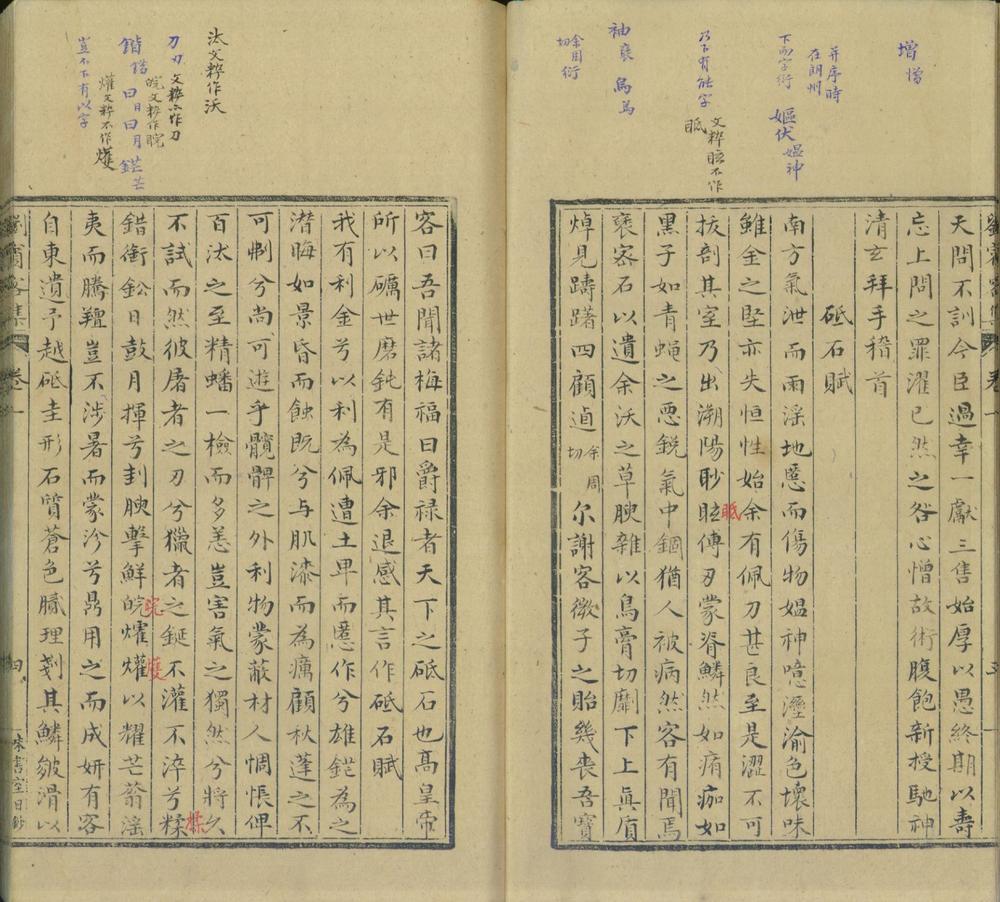 增憎
并序時
在朗州
下而字衍
嫗伏媪神
乃下有能字
文粹眩不作
眂
袖褎 鳥焉
余周
切衍
天問不訓今臣過幸一獻三售始厚以愚終期以壽
忘上問之罪濯已然之咎心憎故術腹飽新授馳神
清玄拜手稽首
砥石賦
南方氣泄而雨淫地慝而傷物媪神噫溼渝色壞味
雖金之堅亦失恒性始余有佩刀甚良至是澀不可
拔剖其室乃出溯陽眇眩傅刃蒙脊鱗然如痏痂如
眂
黑子如青蝇之惡銳氣中錮猶人被病然客有聞焉
褎密石以遺余沃之草腴雜以鳥膏切劘下上真質
焯見躊躇四顧逌
余周
切
尔謝客微子之貽幾喪吾寶
汰文粹作沃
刀刃文粹不作刀
皖文粹作睆
鍇錯 曰日曰月 鋩芒
爟文粹不作爟
豈不下有以字
客曰吾聞諸梅福曰爵禄者天下之砥石也髙皇帝
所以礪世磨鈍有是邪余退感其言作砥石賦
我有利金兮以利為佩遭土卑而慝作兮雄鋩為之
潛晦如景昏而蝕既兮与肌漆而為癘顧秋蓬之不
可刜兮尚可遊乎髖髀之外利物蒙蔽材人惆悵俾
百汰之至精蟠一檢而多恙豈害氣之獨然兮將久
不試而然彼屠者之刃兮獵者之鋋不灌不淬兮糅
錯銜鈆日鼓月揮兮刲腴擊鮮皖爟爟以耀芒蓊淫
夷而騰羶豈不涉暑而蒙沴兮鼎用之而成妍有客
自東遺予越砥圭形石質蒼色膩理剗其鱗皴滑以
劉賓客集
卷一
四